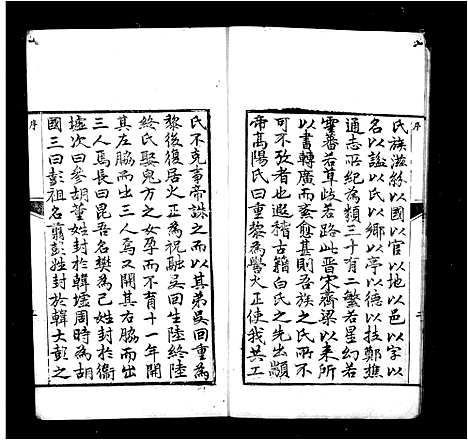 序
氏族滋繁以國以官以地以邑以字以
名以謚以氏以鄉以亭以德以技鄭樵
通志所紀為類三十有二繁若星幻若
霧蕃若草歧若路此晋宋齊梁以来所
以書轉廣而紊愈甚則吾族之氏所不
可不攷者也遐稽古籍白氏之先出顓
帝高陽氏曰重黎為嚳火正使我共工
序
氏不克事帝誅之而以其弟吴回重為
黎後復居火正為祝融吴回生陸終陸
終氏娶鬼方之女孕而不育十一年開
其左脇而出三人焉又開其右脇而出
三人焉長曰昆吾名樊為己姓封於衛
墟次曰參胡董姓封於韓墟周時為胡
國三曰彭祖名翦彭姓封於韓大彭之